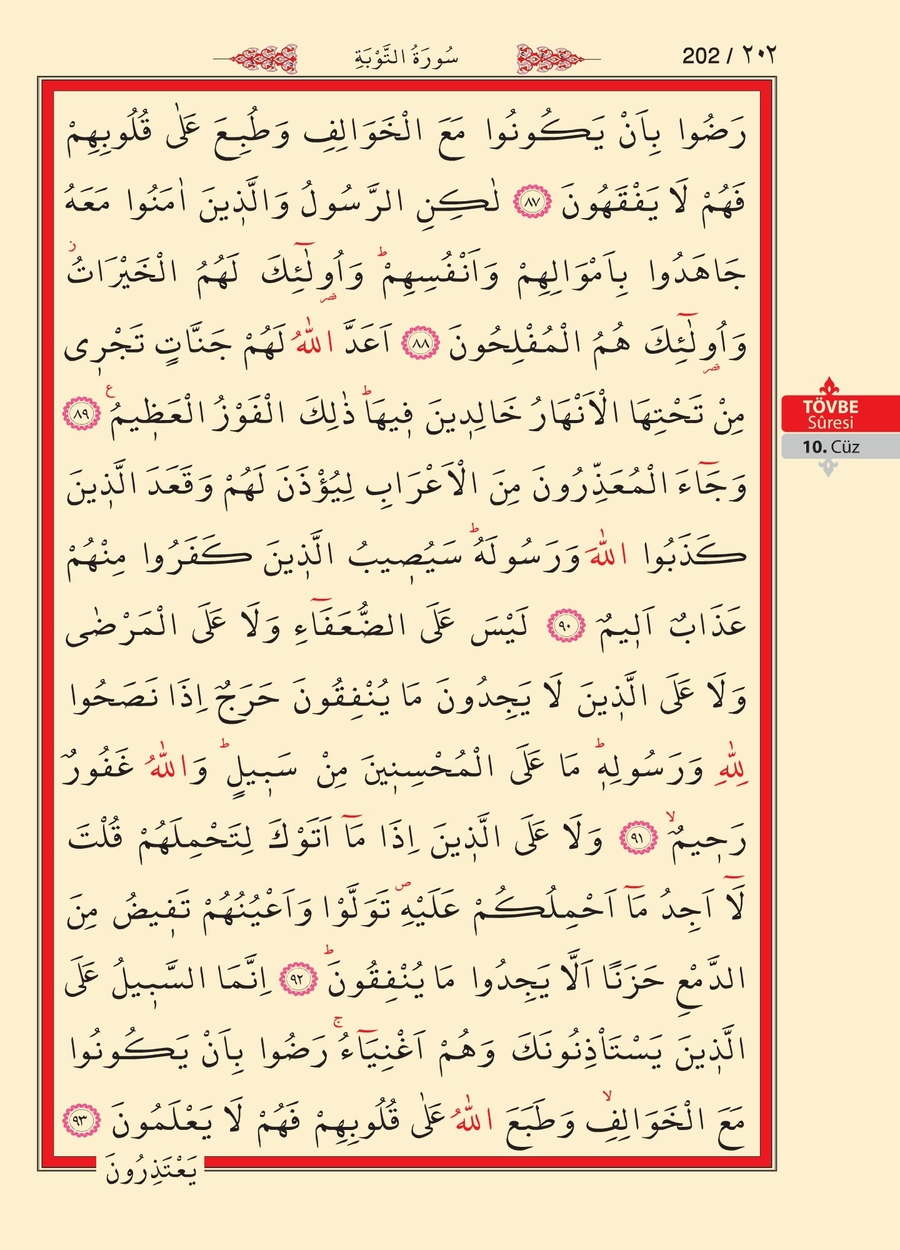 202 / ٢٠٢
سُورَةُ التَّوْبَةِ
رَضُوا بِاَنْ يَكُونُوا مَعَ الْخَوَالِفِ وَطُبِعَ عَلٰى قُلُوبِهِمْ
فَهُمْ لَا يَفْقَهُونَ ﴿٨٧﴾ لٰكِنِ الرَّسُولُ وَالَّذٖينَ اٰمَنُوا مَعَهُ
جَاهَدُوا بِاَمْوَالِهِمْ وَاَنْفُسِهِمْؕ وَاُو۬لٰٓئِكَ لَهُمُ الْخَيْرَاتُؗ
وَاُو۬لٰٓئِكَ هُمُ الْمُفْلِحُونَ ﴿٨٨﴾ اَعَدَّ اللّٰهُ لَهُمْ جَنَّاتٍ تَجْرٖى
مِنْ تَحْتِهَا الْاَنْهَارُ خَالِدٖينَ فٖيهَاؕ ذٰلِكَ الْفَوْزُ الْعَظٖيمُࣖ ﴿٨٩﴾
وَجَٓاءَ الْمُعَذِّرُونَ مِنَ الْاَعْرَابِ لِيُؤْذَنَ لَهُمْ وَقَعَدَ الَّذٖينَ
كَذَبُوا اللّٰهَ وَرَسُولَهُؕ سَيُصٖيبُ الَّذٖينَ كَفَرُوا مِنْهُمْ
عَذَابٌ اَلٖيمٌ ﴿٩٠﴾ لَيْسَ عَلَى الضُّعَفَٓاءِ وَلَا عَلَى الْمَرْضٰى
وَلَا عَلَى الَّذٖينَ لَا يَجِدُونَ مَا يُنْفِقُونَ حَرَجٌ اِذَا نَصَحُوا
لِلّٰهِ وَرَسُولِهٖؕ مَا عَلَى الْمُحْسِنٖينَ مِنْ سَبٖيلٍؕ وَاللّٰهُ غَفُورٌ
رَحٖيمٌۙ ﴿٩١﴾ وَلَا عَلَى الَّذٖينَ اِذَا مَٓا اَتَوْكَ لِتَحْمِلَهُمْ قُلْتَ
لَٓا اَجِدُ مَٓا اَحْمِلُكُمْ عَلَيْهِࣕ تَوَلَّوْا وَاَعْيُنُهُمْ تَفٖيضُ مِنَ
الدَّمْعِ حَزَنًا اَلَّا يَجِدُوا مَا يُنْفِقُونَؕ ﴿٩٢﴾ اِنَّمَا السَّبٖيلُ عَلَى
الَّذٖينَ يَسْتَأْذِنُونَكَ وَهُمْ اَغْنِيَٓاءُۚ رَضُوا بِاَنْ يَكُونُوا
مَعَ الْخَوَالِفِۙ وَطَبَعَ اللّٰهُ عَلٰى قُلُوبِهِمْ فَهُمْ لَا يَعْلَمُونَ ﴿٩٣﴾
يَعْتَذِرُونَ
TÖVBE
Sûresi
10. Cüz